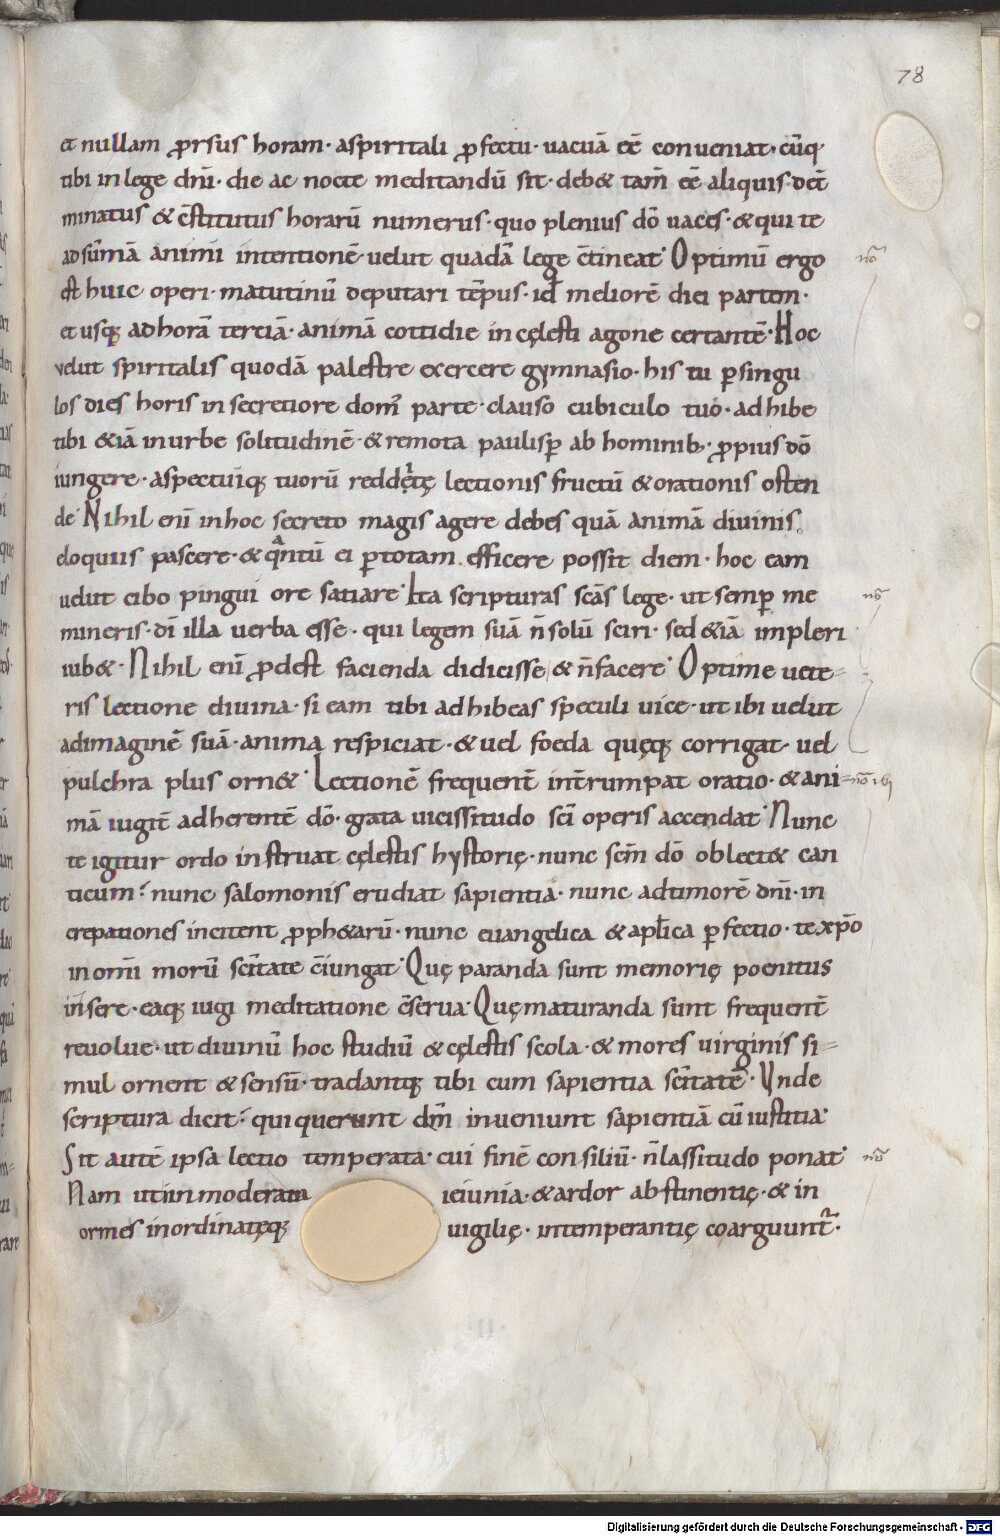 78
et nullam ꝓrsus horam· aspiritali ꝓfectu· uacuā eē conueniat· cūq;
tibi in lege dn̄i· die ac nocte meditandū sit· deb& tam̄ eē aliquis· det̄
minatus & c̄stitutus horarū numerus· quo plenius dō uaces· & qui te
ad sūmā animi intentionē· uelut quadā lege c̄tineat· Optimū ergo
est huic operi· matutinū deputari tēpus· id ł meliorē diei partem·
et usq; ad horā terciā· animā cottidie in cęlesti agone certantē· Hoc
uelut spiritalis quodā palestre exercere gymnasio· his tu ꝑ singu
los dies horis in secretiore dom̄ parte· clauso cubiculo tuo· adhibe
tibi &iā in urbe solitudinē· & remota paulisꝑ ab hominib;· ꝓpius dō
iungere· aspectuiq; tuorū reddęte lectionis fructū & orationis osten
de· Nihil eni in hoc secreto magis agere debes quā animā diuinis
eloquiis pascere· & qntū ei ꝑ totam efficere possit diem· hoc eam
uelut cibo pingui ore satiare· Ita scripturas scās lege· ut semꝑ me
mineris· dī illa uerba esse· qui legem suā n̄ solū sciri· sed &iā impleri
iub&· Nihil eni ꝓdest facienda didicisse & n̄ facere· Optime uete-
ris lectione diuina· si eam tibi adhibeas speculi uice· ut ibi uelut
ad imaginē suā· anima respiciat· & uel foeda quęq; corrigat· uel
pulchra plus orn&· Lectionē frequent̄ int̄rumpat oratio· & ani-
mā iugit̄ adherentē dō· grata uicissitudo sc̄i operis accendat· Nunc
te igitur ordo instruat cęlestis hystorię· nunc sc̄m dō oblect& can
ticum· nunc salomonis erudiat sapientia· nunc ad timorē dn̄i· in
crepationes incitent ꝓph&arū· nunc euangelica & apl̄ica ꝑfectio· te xp̄o
in om̄i morū sc̄itate c̄iungat· Quę paranda sunt memorię poenitus
insere· eaq; iugi meditatione c̄serua· Quę maturanda sunt frequent̄
reuolue· ut diuinū hoc studiū & cęlestis scola· & mores uirginis si-
mul ornent & sensū· tradantq; tibi cum sapientia sc̄itatē· Unde
scriptura dicit· qui querunt dm̄ inueniunt sapientiā cū iustitia·
Sit autē ipsa lectio temperata· cui finē consiliū· n̄ lassitudo ponat·
Nam ut immoderata ieiunia· & ardor abstinentię· & in
ormes inordinatęq; uigilię· intemperantię coarguunt·
Digitalisierung gefördert durch die Deutsche Forschungsgemeinschaft - DFG